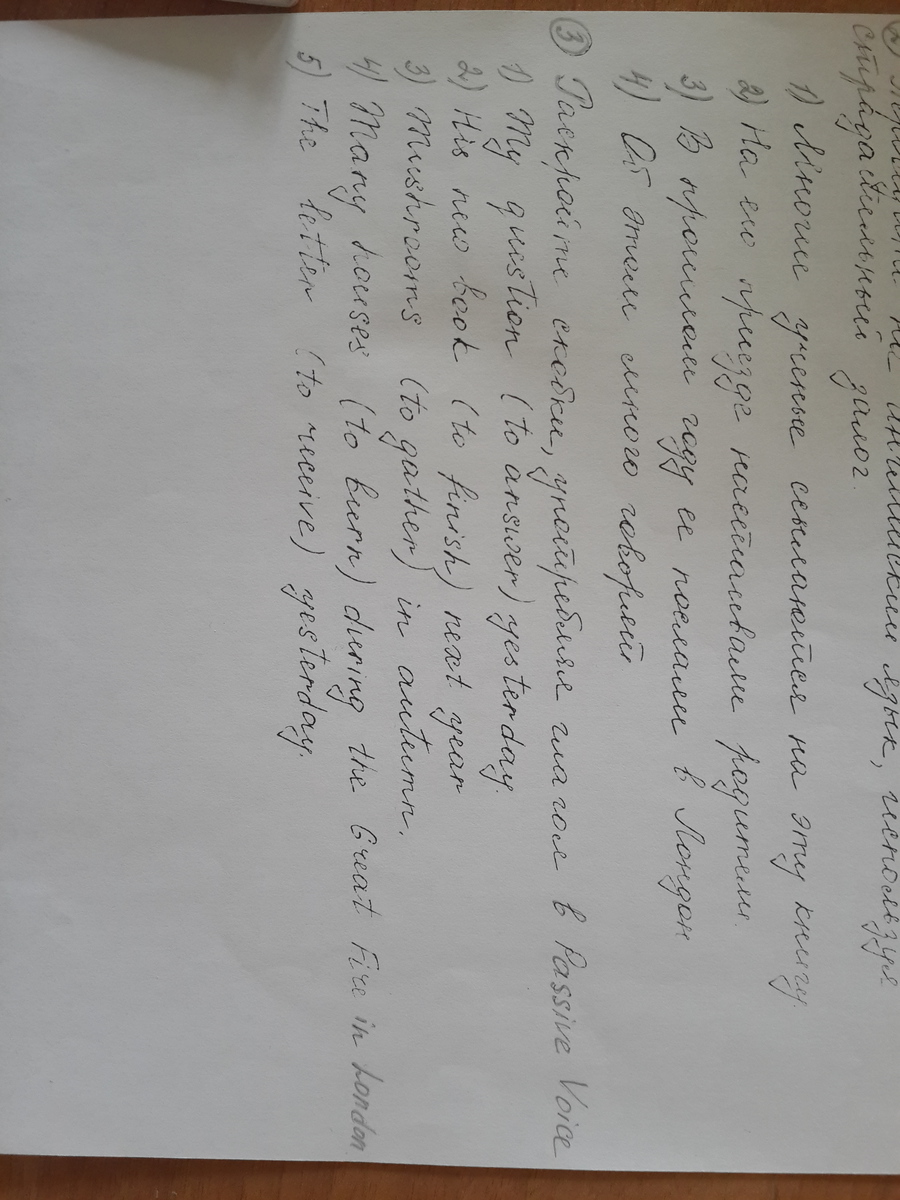 2) Переведите на английский язык, используя
страдательный залог.
1) Многие ученые ссылаются на эту книгу.
2) На его приезде настаивали родители.
3) В прошлом году ее послали в Лондон
4) Об этом много говорят.
3) Раскройте скобки, употребляя глагол в Passive Voice
1) My question (to answer) yesterday.
2) His new book (to finish) next year
3) Mushrooms (to gather) in autumn.
4) Many houses (to burn) during the Great Fire in London.
5) The letter (to receive) yesterday.